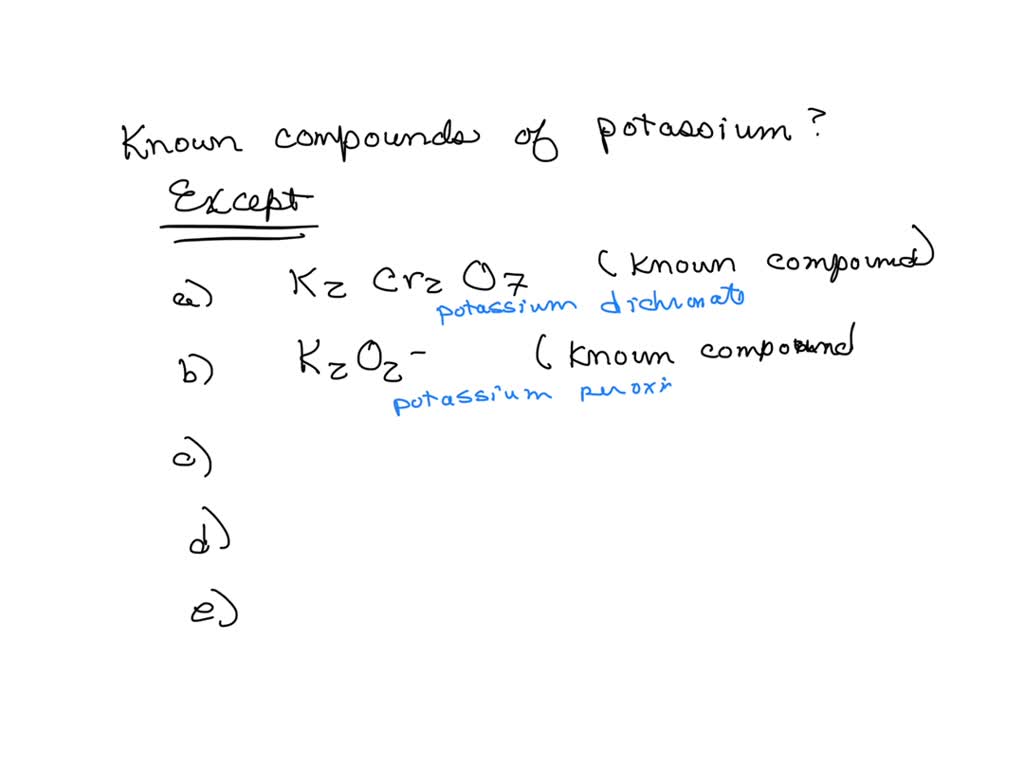 Known compounds of potassium?
Except
a) K2 Cr2 O7 (Known compound)
potassium dichromate
b) K2O2 - (Known compound
potassium peroxi
c)
d)
e)